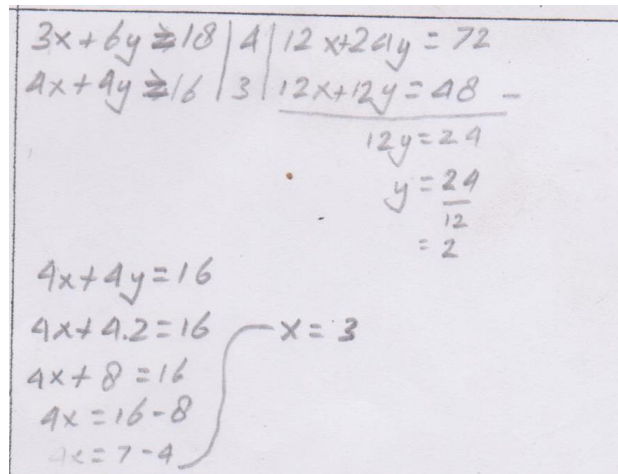 3x+6y ≥ 18 | 4 | 12x+24y = 72
4x+4y ≥ 16 | 3 | 12x+12y = 48 -
12y = 24
y = 24/12
= 2
4x+4y = 16
4x+4.2 = 16
x = 3
4x+8 = 16
4x = 16-8
4x = 7-4